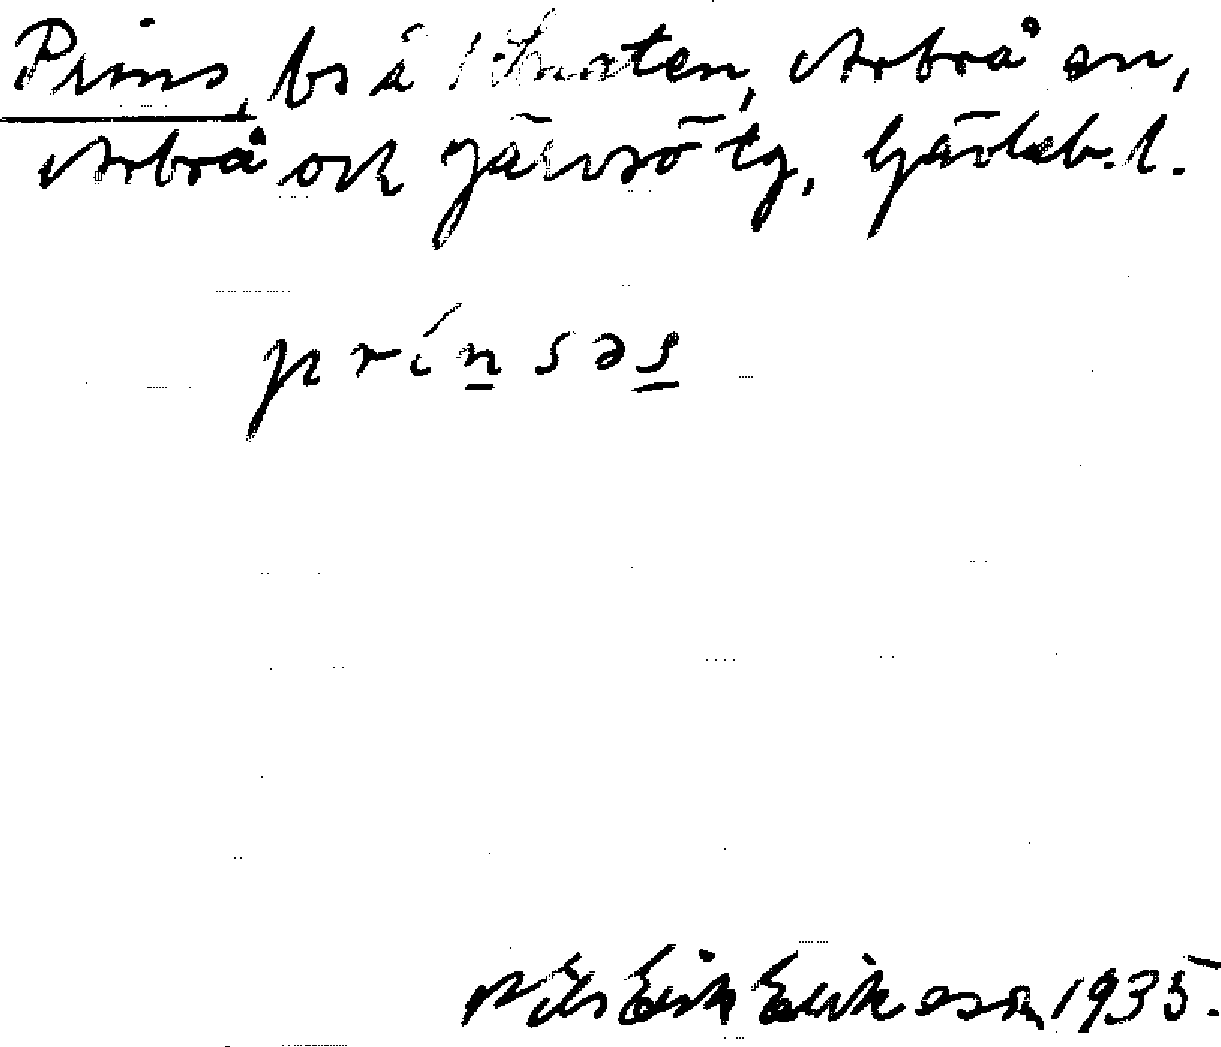 Prins, bs å 1 :Knaten, Arbrå sn,
Arbrå och Järvsö tg, Gävleb. l.
prínsəs
Nils Erik Eriksson 1935.